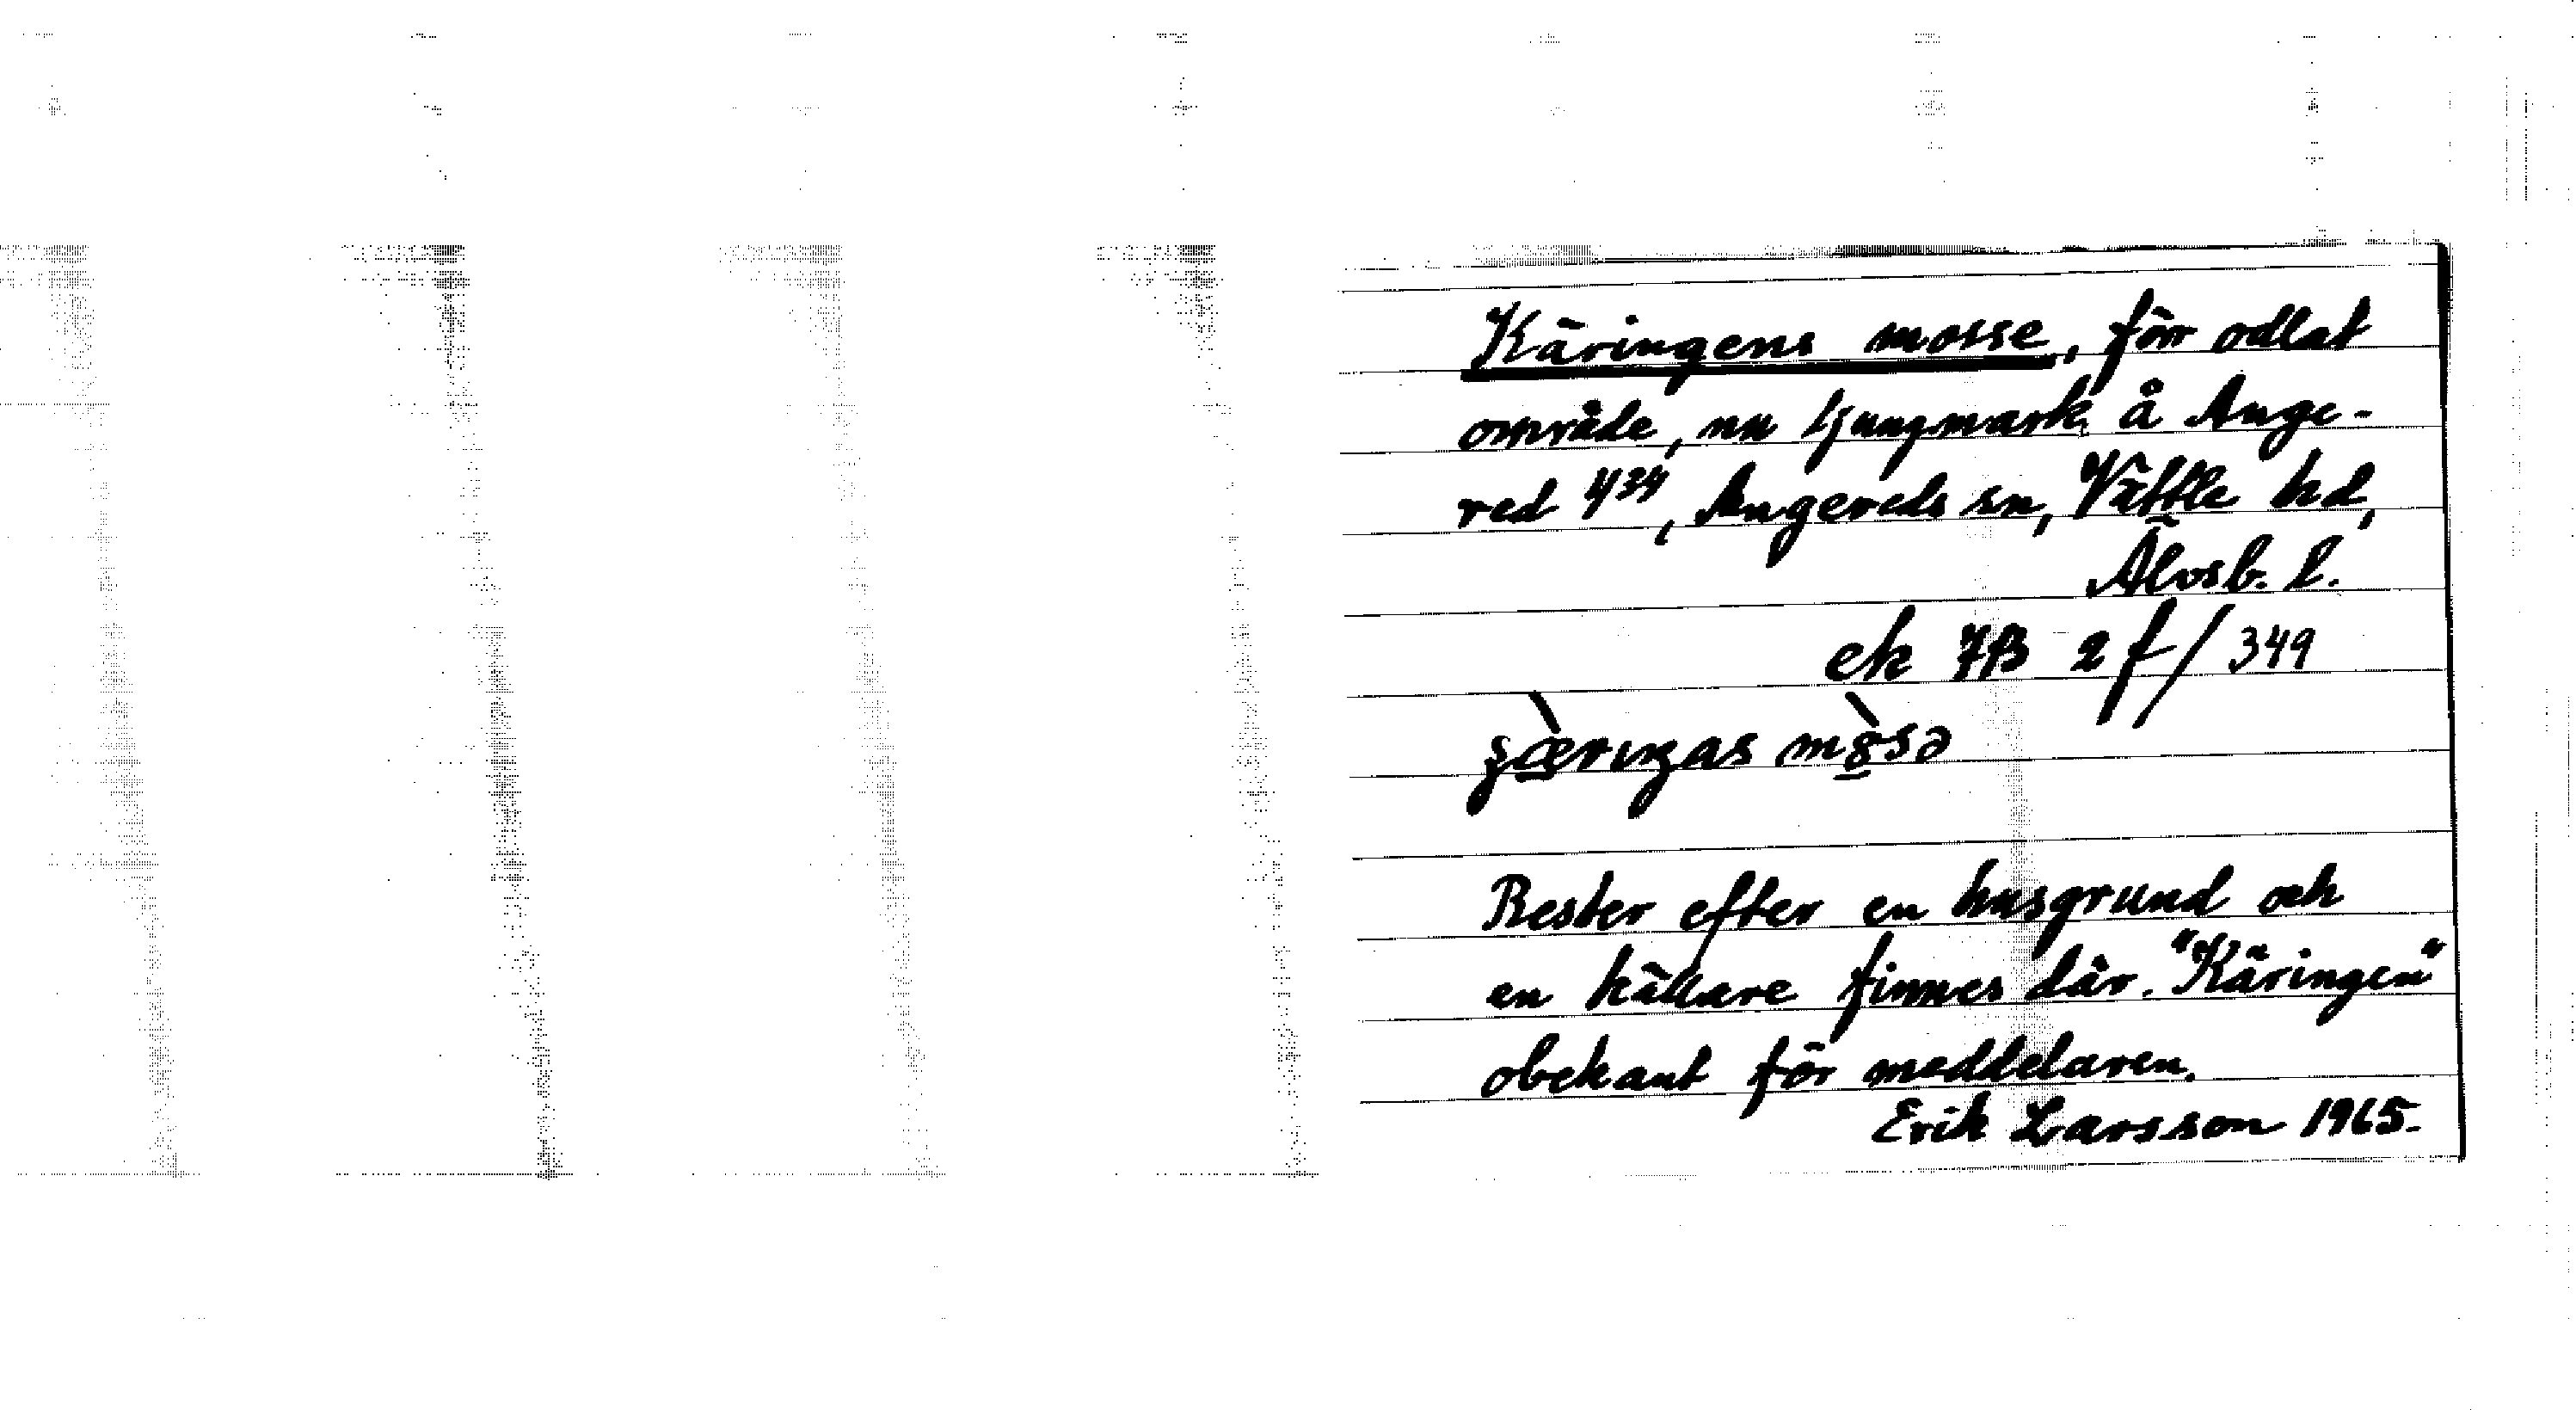 Käringens mosse, förr odlat
område, nu ljungmark å Ange-
red 4³⁴, Angereds sn, Vättle hd,
Älvsb. l.
ek 7B 2f/349
Rester efter en husgrund och
en källare finnes där. "Käringen"
obekant för meddelaren.
Erik Larsson 1965.